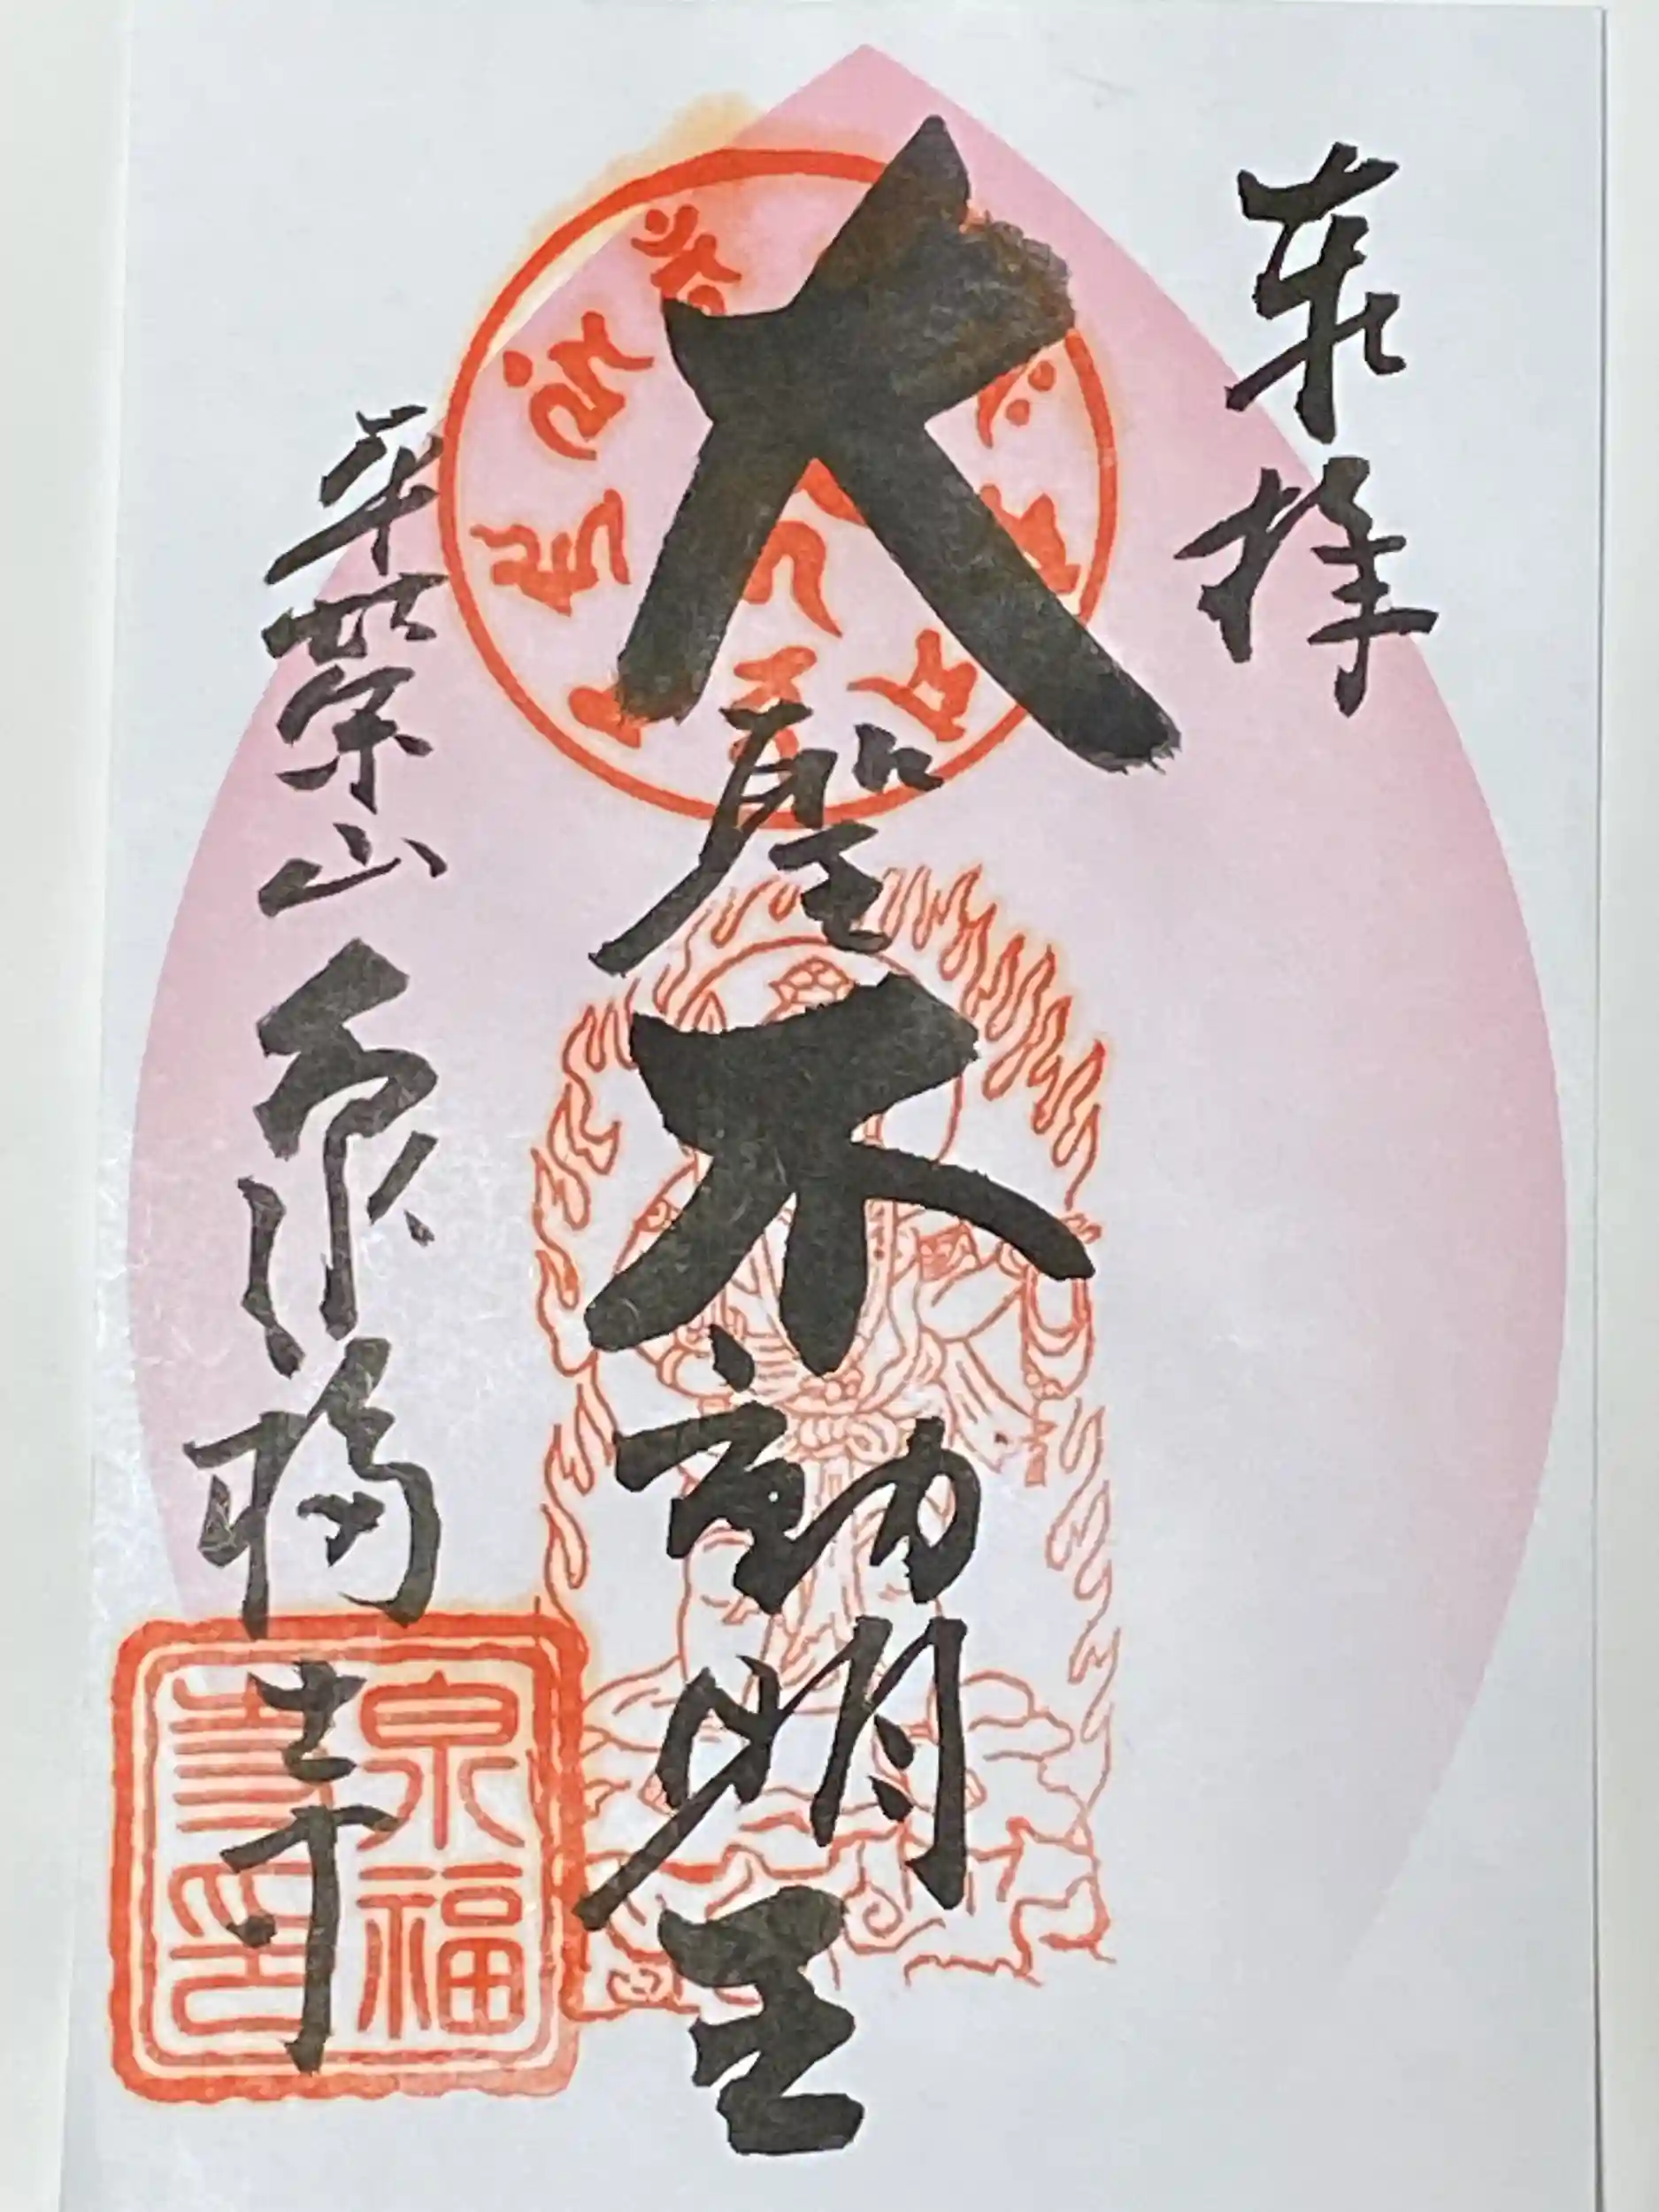 奉拝
大聖不動明王
平栄山 泉福寺
泉福
寺印